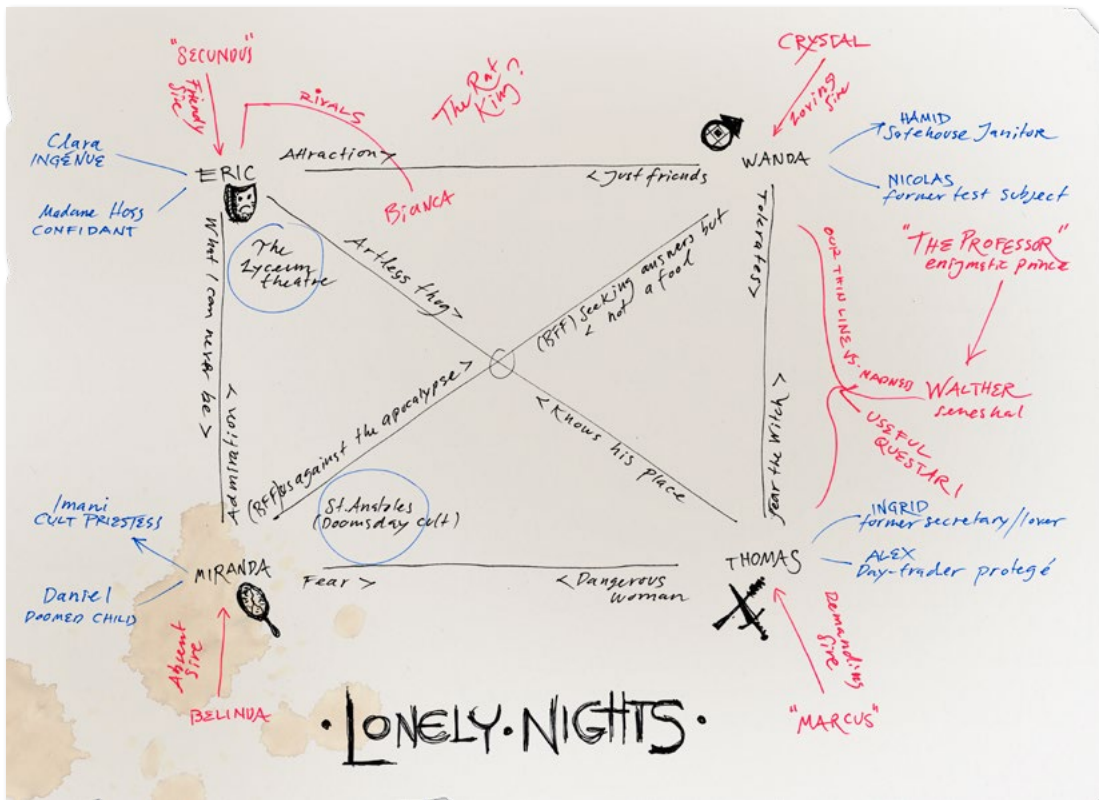 "SECUNDUS"
Friendly
Sire
RIVALS
The Rat
King?
CRYSTAL
Loving sire
Clara
INGENUE
ERIC
Madame Hoss
CONFIDANT
Attraction >
< Just friends
BIANCA
WANDA
HAMID
Safehouse Janitor
NICOLAS
former test subject
"THE PROFESSOR"
enigmatic prince
The
Lyceum
theatre
What I can never be >
< Admiration
Artless thug >
(BFF) Seeking answers but
< not a food
Tolerates >
Fear the Witch >
OUR THIN LINE VS. MADNESS
WALTHER
seneshal
USEFUL
QUESTARI
(BFF) us against the apocalypse >
< Knows his place
St. Anatoles
(Doomsday cult)
Imani
CULT PRIESTESS
Daniel
DOOMED CHILD
MIRANDA
Fear >
< Dangerous
woman
THOMAS
INGRID
former secretary/lover
ALEX
Day-trader protegé
Absent
Sire
BELINDA
Demanding
Sire
"MARCUS"
· LONELY · NIGHTS ·